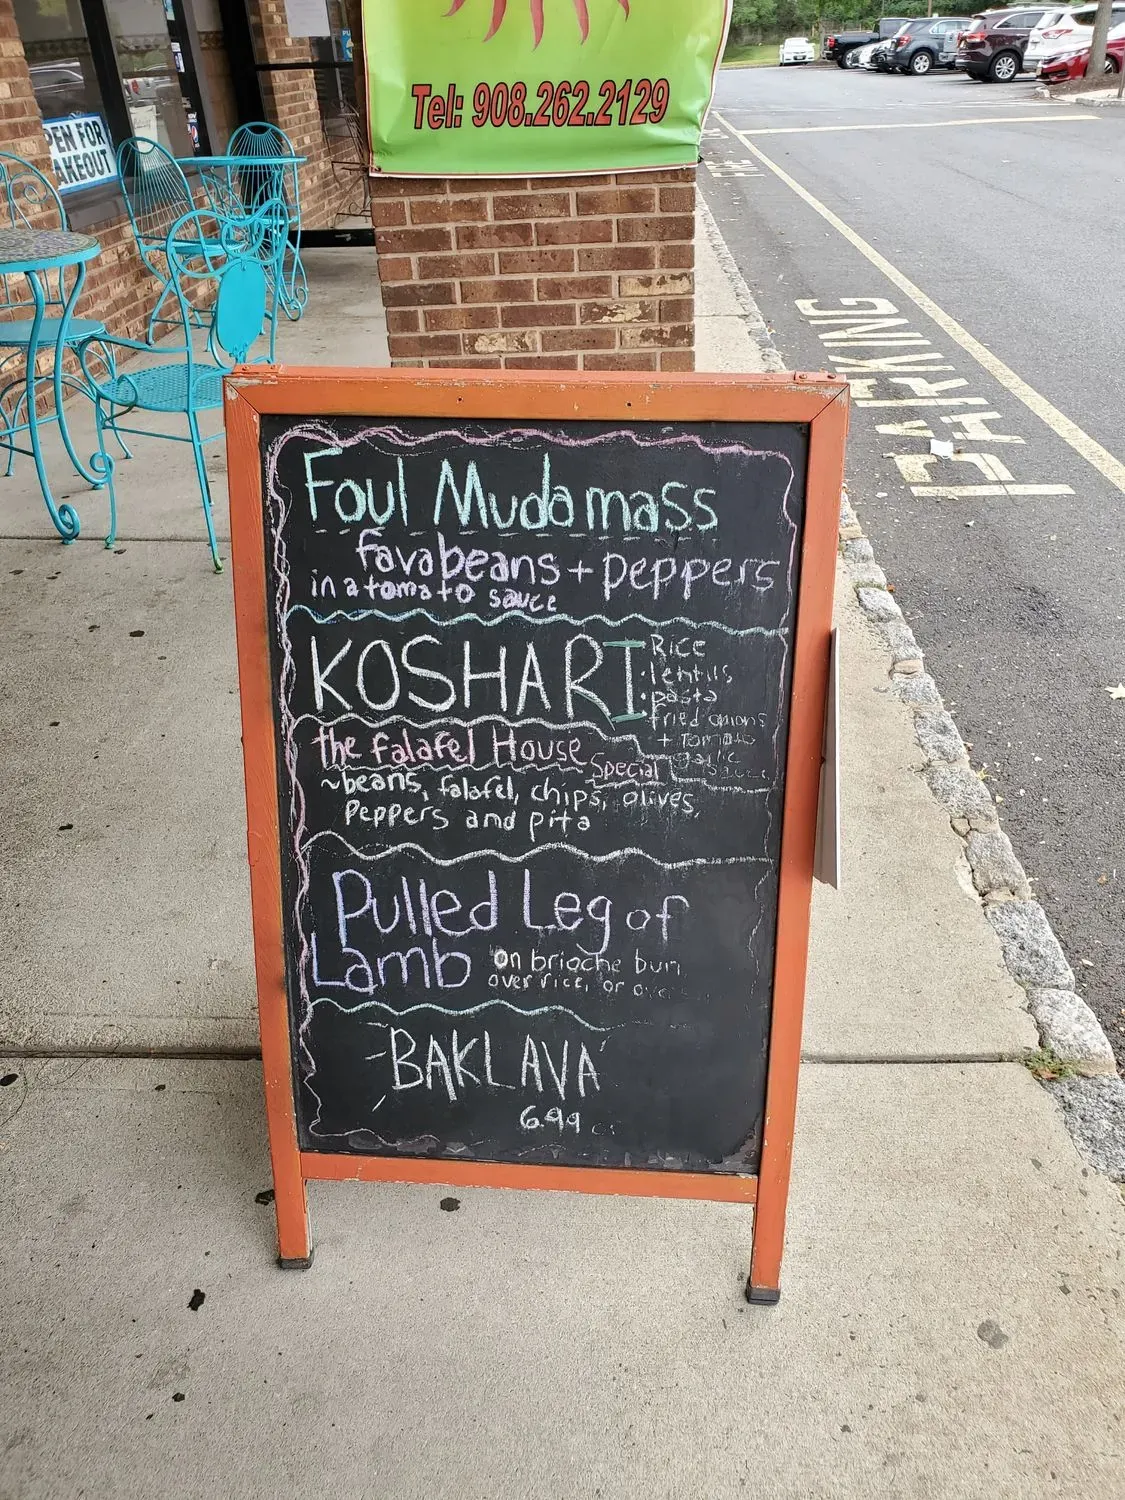 Tel: 908.262.2129
PEN FOR
AKEOUT
Foul Mudamass
favabeans + peppers
in a tomato sauce
KOSHARI
Rice
lentils
pasta
fried onions
+ Tomato
garlic
sauce
the falafel House
Special
~beans, falafel, chips, olives,
Peppers and pita
Pulled Leg of
Lamb
on brioche bun
over rice, or over
-BAKLAVA
6.99